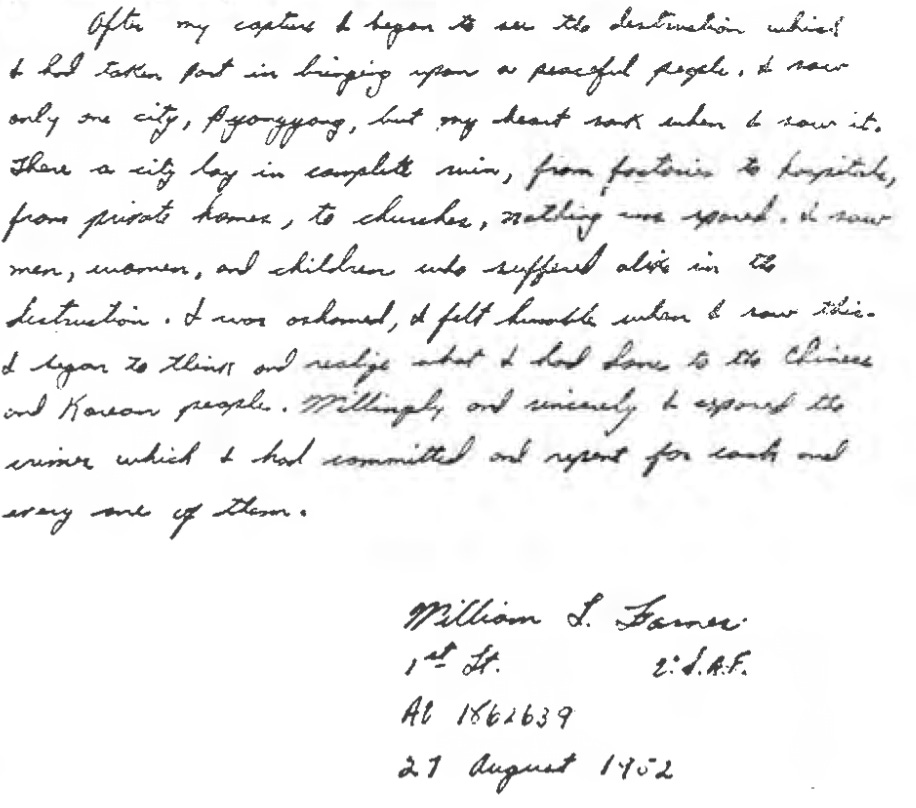 After my capture I began to see the destruction which
I had taken part in bringing upon a peaceful people. I saw
only one city, Pyongyang, but my heart sank when I saw it.
There a city lay in complete ruin, from factories to hospitals,
from private homes, to churches, nothing was spared. I saw
men, women, and children who suffered alike in the
destruction. I was ashamed, I felt humble when I saw this.
I began to think and realize what I had done to the Chinese
and Korean people. Willingly and sincerely I exposed the
crimes which I had committed and repent for each and
every one of them.
William L.
1st Lt. U.S.A.F.
AO 1862639
27 August 1952